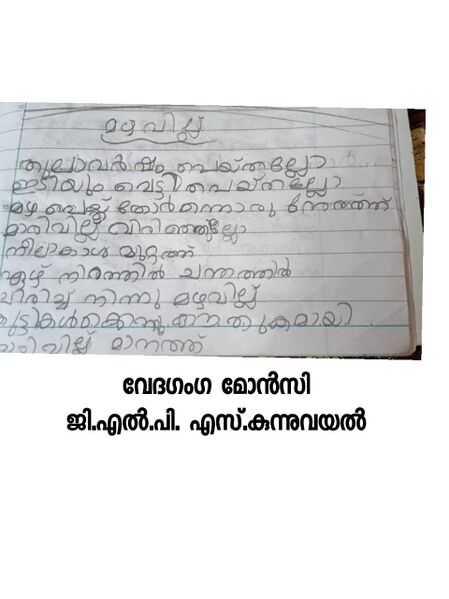 മഴവില്ല്
തുലാവർഷം പെയ്തല്ലോ
ഇടിയും വെട്ടി പെയ്തല്ലോ
മഴ പെയ്ത് തോർന്നൊരു നേരത്ത്
മാരിവില്ല് വിരിഞ്ഞല്ലോ
നീലാകാശ മുറ്റത്ത്
ഏഴ് നിറത്തിൽ ചന്തത്തിൽ
വിരിച്ച് നിന്നു മഴവില്ല്
കുട്ടികൾക്കെന്നും കൗതുകമായി
മാരിവില്ല് മാനത്ത്
വേദഗംഗ മോൻസി
ജി.എൽ.പി. എസ്.കുന്നുവയൽ